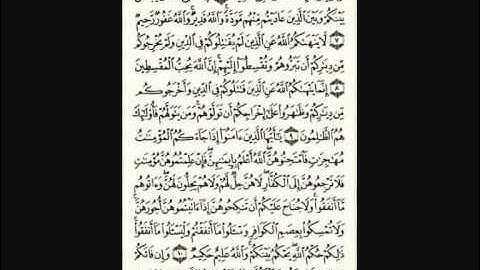 بَيْنَكُمْ وَبَيْنَ ٱلَّذِينَ عَادَيْتُم مِّنْهُم مَّوَدَّةً وَٱللَّهُ قَدِيرٌ وَٱللَّهُ غَفُورٌ رَّحِيمٌ
٧ لَّا يَنْهَىٰكُمُ ٱللَّهُ عَنِ ٱلَّذِينَ لَمْ يُقَٰتِلُوكُمْ فِى ٱلدِّينِ وَلَمْ يُخْرِجُوكُم
مِّن دِيَٰرِكُمْ أَن تَبَرُّوهُمْ وَتُقْسِطُوٓا۟ إِلَيْهِمْ إِنَّ ٱللَّهَ يُحِبُّ ٱلْمُقْسِطِينَ
٨ إِنَّمَا يَنْهَىٰكُمُ ٱللَّهُ عَنِ ٱلَّذِينَ قَٰتَلُوكُمْ فِى ٱلدِّينِ وَأَخْرَجُوكُم
مِّن دِيَٰرِكُمْ وَظَٰهَرُوا۟ عَلَىٰٓ إِخْرَاجِكُمْ أَن تَوَلَّوْهُمْ وَمَن يَتَوَلَّهُمْ فَأُو۟لَٰٓئِكَ
هُمُ ٱلظَّٰلِمُونَ ٩ يَٰٓأَيُّهَا ٱلَّذِينَ ءَامَنُوٓا۟ إِذَا جَآءَكُمُ ٱلْمُؤْمِنَٰتُ
مُهَٰجِرَٰتٍ فَٱمْتَحِنُوهُنَّ ٱللَّهُ أَعْلَمُ بِإِيمَٰنِهِنَّ فَإِنْ عَلِمْتُمُوهُنَّ مُؤْمِنَٰتٍ
فَلَا تَرْجِعُوهُنَّ إِلَى ٱلْكُفَّارِ لَا هُنَّ حِلٌّ لَّهُمْ وَلَا هُمْ يَحِلُّونَ لَهُنَّ وَءَاتُوهُم
مَّآ أَنفَقُوا۟ وَلَا جُنَاحَ عَلَيْكُمْ أَن تَنكِحُوهُنَّ إِذَآ ءَاتَيْتُمُوهُنَّ أُجُورَهُنَّ
وَلَا تُمْسِكُوا۟ بِعِصَمِ ٱلْكَوَافِرِ وَسْـَٔلُوا۟ مَآ أَنفَقْتُمْ وَلْيَسْـَٔلُوا۟ مَآ أَنفَقُوا۟
ذَٰلِكُمْ حُكْمُ ٱللَّهِ يَحْكُمُ بَيْنَكُمْ وَٱللَّهُ عَلِيمٌ حَكِيمٌ ١٠ وَإِن فَاتَكُمْ